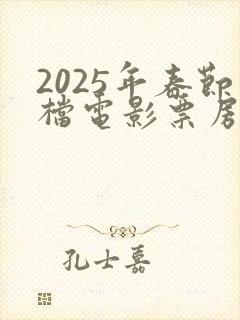 2025年春節
檔電影票房
孔士嘉